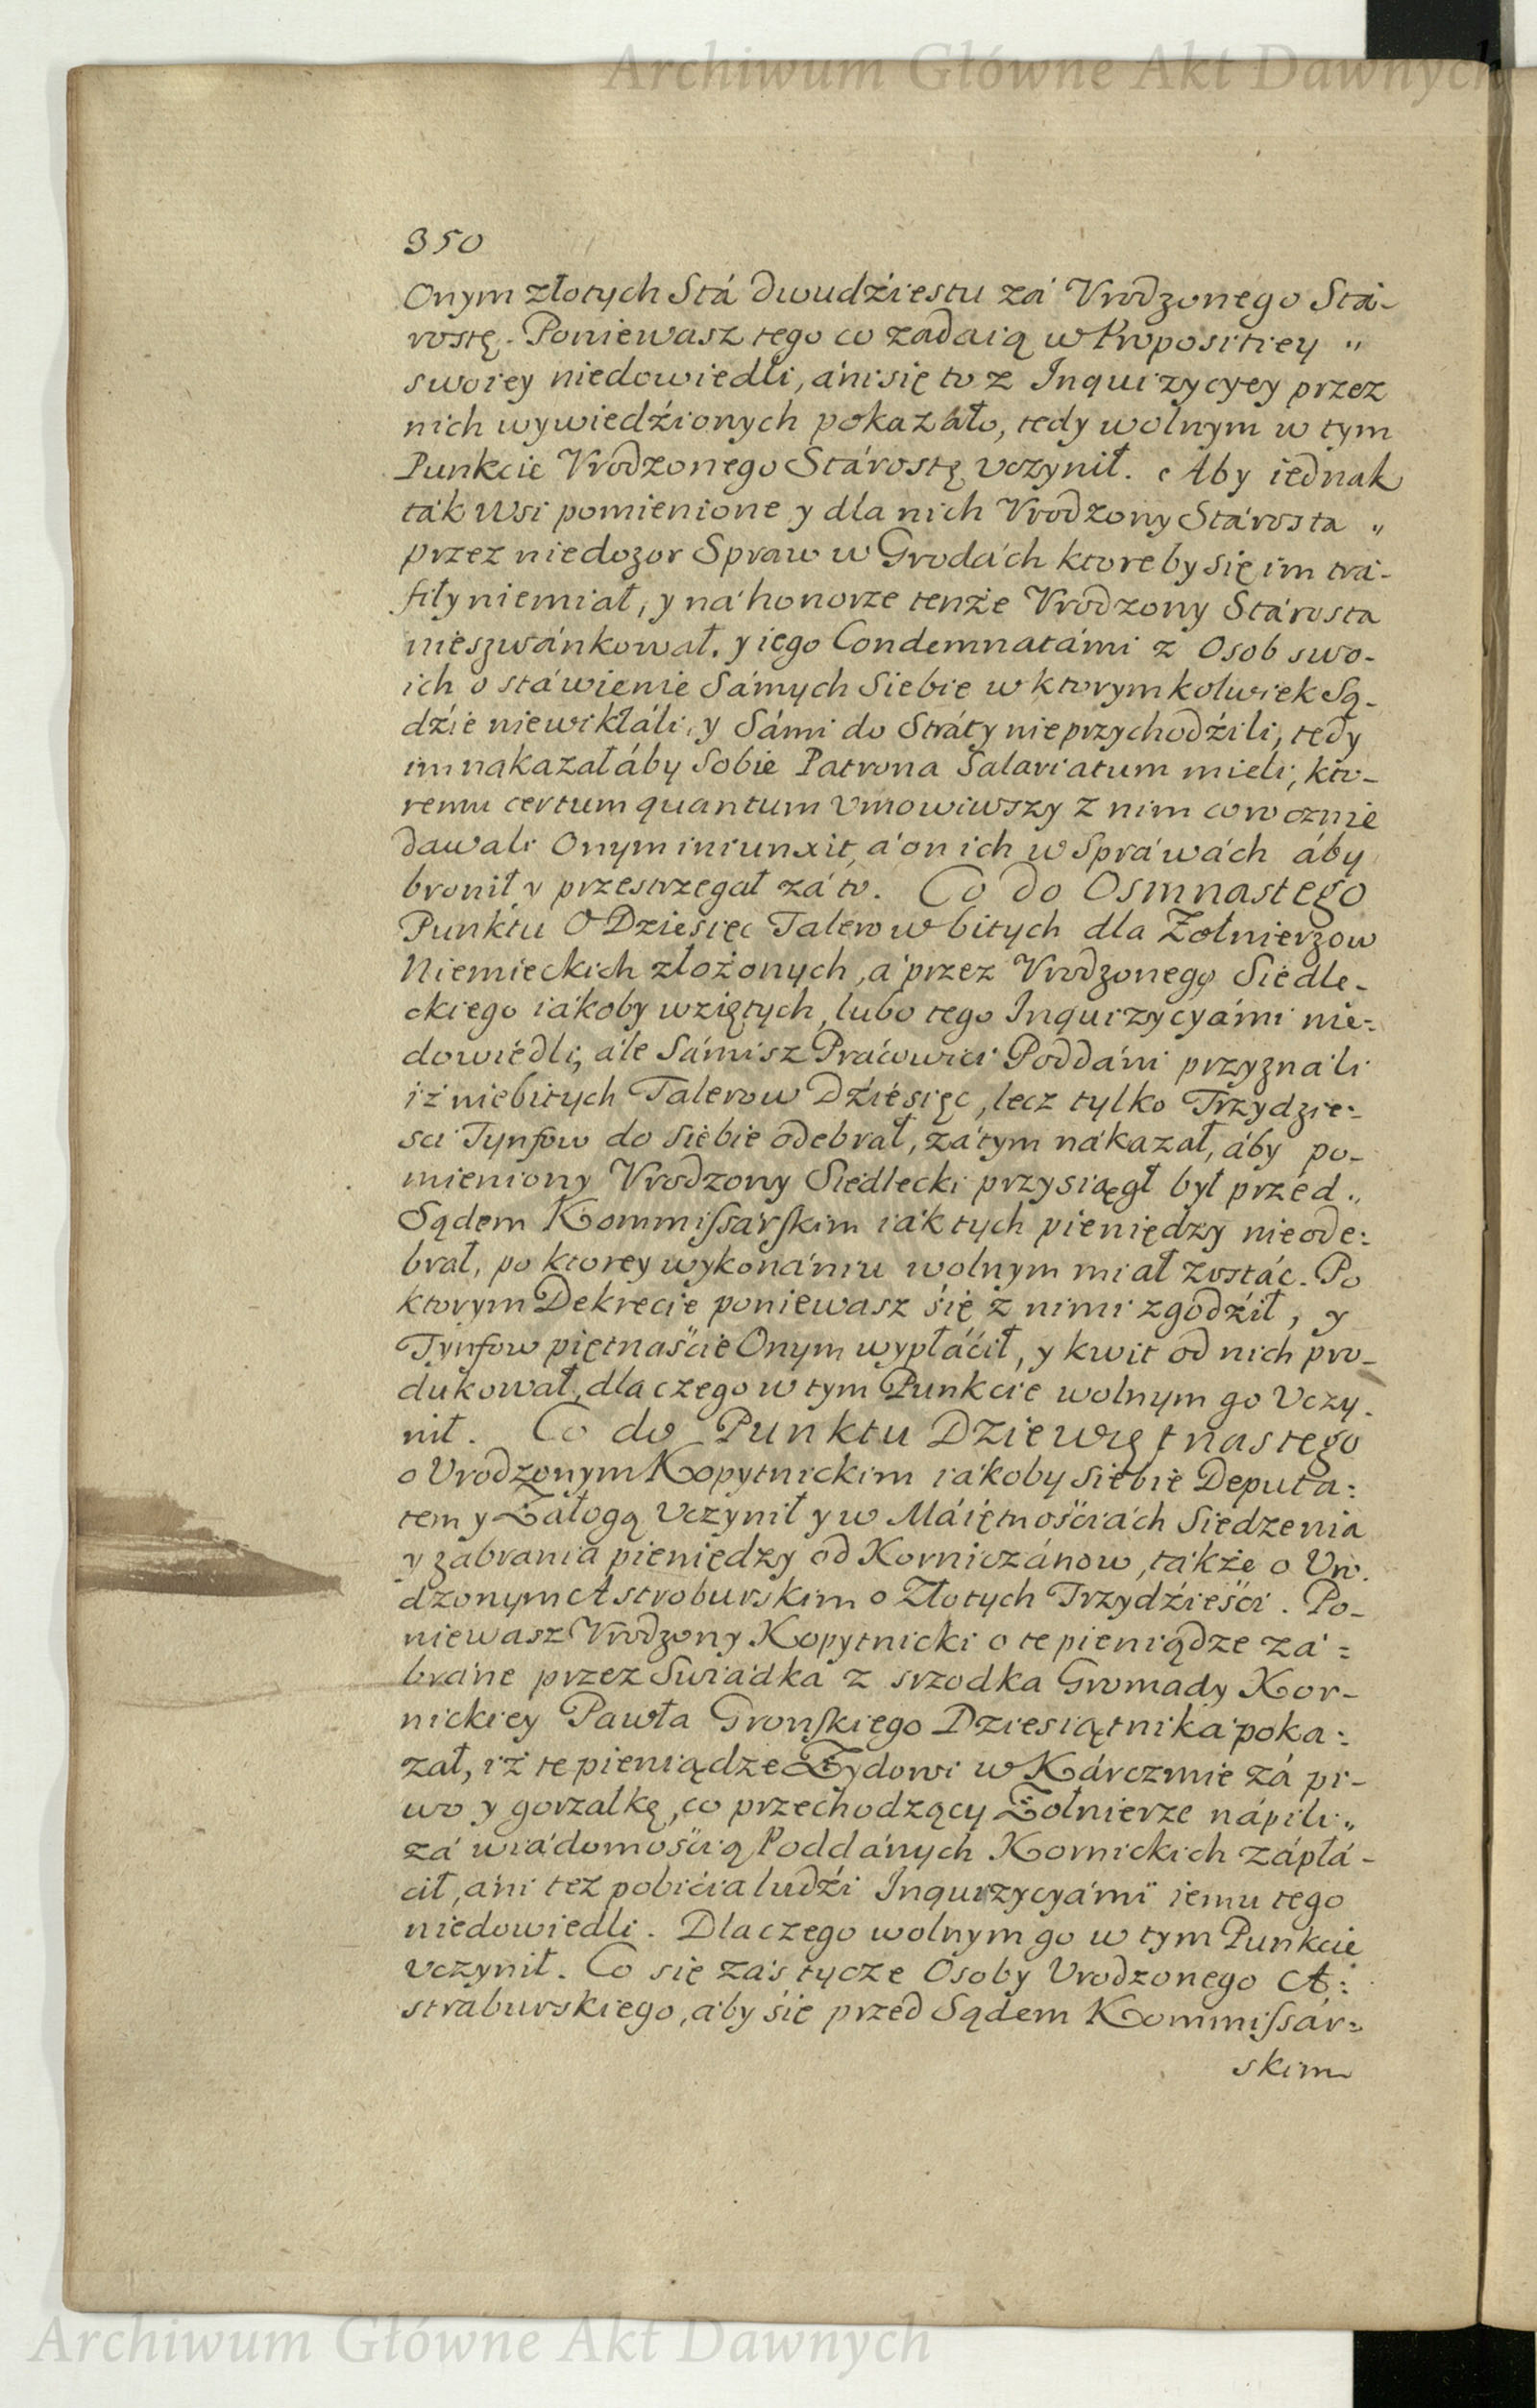 Archiwum Główne Akt Dawnych
350
Onym złotych Stá dwudźiestu zá Vrodzonego Stá-
rostę. Poniewasz tego co zadaią w Propositiey „
swoiey niedowiedli, áni się to z Inquizycyey przez
nich wywiedźionych pokazáło, tedy wolnym w tym
Punkcie Vrodzonego Stárostę vczynił. Aby iednak
ták Wsi pomienione y dla nich Vrodzony Stárosta „
przez niedozor Spraw w Grodách ktore by się im trá-
fiły niemiał, y ná honorze tenże Vrodzony Stárosta
nieszwánkował, y iego Condemnatámi z Osob swo-
ich o stáwienie Sámych Siebie w ktorymkolwiek Są-
dźie niewikłáli, y Sámi do Stráty nieprzychodźili, tedy
im nakazał áby Sobie Patrona Salariatum mieli, kto-
remu certum quantum Vmowiwszy z nim corocznie
dawali Onym iniunxit, á on ich w Spráwách áby
bronił y przestrzegał zá to. Co do Osmnastego
Punktu O Dziesięc Talerow bitych dla Żołnierzow
Niemieckich złożonych, á przez Vrodzonego Siedle-
ckiego iákoby wziętych, lubo tego Inquizycyámi nie:
dowiedli, ále Sámisz Prácowici Poddáni przyználi
iż niebitych Talerow Dźiesięc, lecz tylko Trzydzie:
sci Tynfow do Siebie odebrał, zátym nákazał, áby po-
mieniony Vrodzony Siedlecki przysiągł był przed „
Sądem Kommissárskim iák tych pieniędzy nieode:
brał, po ktorey wykonániu wolnym miał zostác. Po
ktorym Dekrecie poniewasz się z nimi zgodźił, y
Tynfow piętnaście Onym wypłáćił, y kwit od nich pro-
dukował, dla czego w tym Punkcie wolnym go Vczy-
nił. Co do Punktu Dziewiętnastego
o Vrodzonym Kopytnickim iákoby Siebie Deputa:
tem y Załogą Vczynił y w Máiętnościách Siedzenia
y zabrania pieniędzy od Korniczánow, tákże o Vro-
dzonym Astroburskim o Złotych Trzydźieści. Po-
niewasz Vrodzony Kopytnicki o te pieniądze zá=
bráne przez Swiádka z srzodka Gromady Kor-
nickiey Pawła Gronskiego Dziesiątniká poka:
zał, iż te pieniądze Żydowi w Kárczmie zá pi-
wo y gorzalkę, co przechodzący Żołnierze nápili „
zá wiádomością Poddánych Kornickich zápłá-
cił, áni tez pobicia ludźi Inquizycyámi iemu tego
niedowiedli. Dla czego wolnym go w tym Punkcie
vczynił. Co się zás tycze Osoby Vrodzonego A:
straburskiego, áby się przed Sądem Kommissár=
skim
Archiwum Główne Akt Dawnych